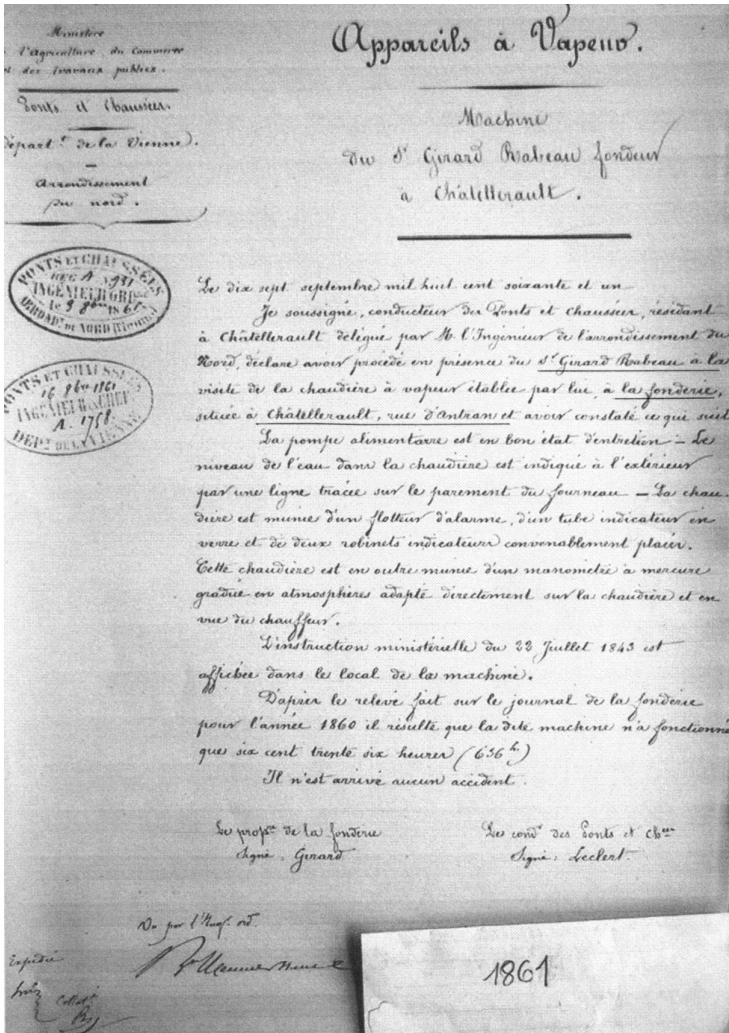 Ministère
l'Agriculture, du Commerce
et des travaux publics.
Ponts et Chaussées.
Départ.t de la Vienne.
Arrondissement
du nord.
Appareils à Vapeur.
Machine
du Sr Girard Rabeau fondeur
à Châtellerault.
PONTS ET CHAUSSÉES
REG A N 931
INGÉNIEUR ORD
le 9 9bre 1861
ARRONDt DU NORD (Vienne)
PONTS ET CHAUSSÉES
16 9bre 1861
INGÉNIEUR EN CHEF
A. 1758.
DÉPt DE LA VIENNE
Le dix sept septembre mil huit cent soixante et un
Je soussigné, conducteur des Ponts et chaussées, résidant
à Châtellerault délégué par M. l'Ingénieur de l'arrondissement du
Nord, déclare avoir procédé en présence du Sr Girard Rabeau à la
visite de la chaudière à vapeur établie par lui, à la fonderie,
située à Châtellerault, rue d'Antran et avoir constaté ce qui suit
La pompe alimentaire est en bon état d'entretien – Le
niveau de l'eau dans la chaudière est indiqué à l'extérieur
par une ligne tracée sur le parement du fourneau – La chau-
dière est munie d'un flotteur d'alarme, d'un tube indicateur en
verre et de deux robinets indicateurs convenablement placés.
Cette chaudière est en outre munie d'un manomètre à mercure
gradué en atmosphères adapté directement sur la chaudière et en
vue du chauffeur.
L'instruction ministérielle du 22 Juillet 1843 est
affichée dans le local de la machine.
D'après le relevé fait sur le journal de la fonderie
pour l'année 1860 il résulte que la dite machine n'a fonctionné
que six cent trente six heures (636h)
Il n'est arrivé aucun accident.
Le propre de la fonderie
Signé : Girard
Le condr des Ponts et Chées
Signé : Leclert.
Vu par l'Ing. ord.
Expédié
Collat
1861